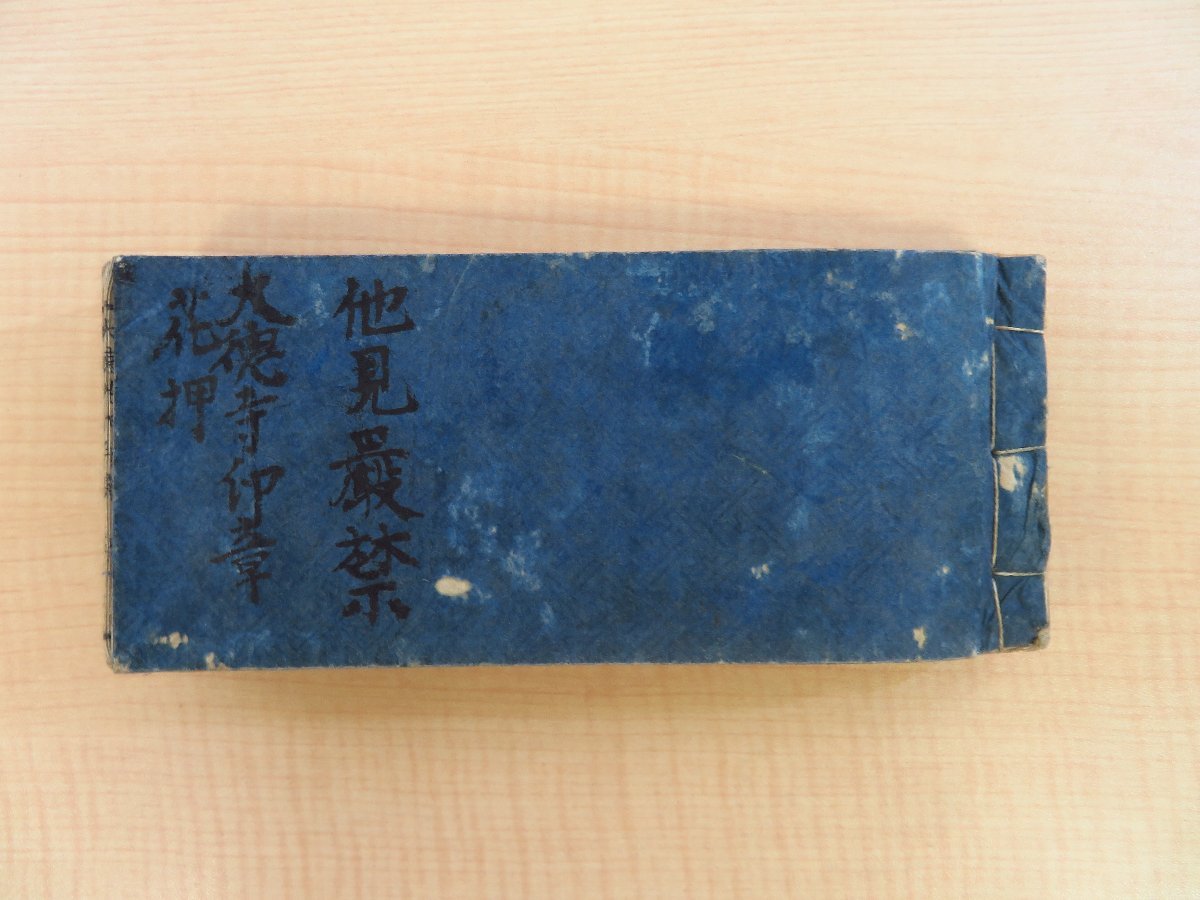 他見嚴禁
大德寺印章
花押